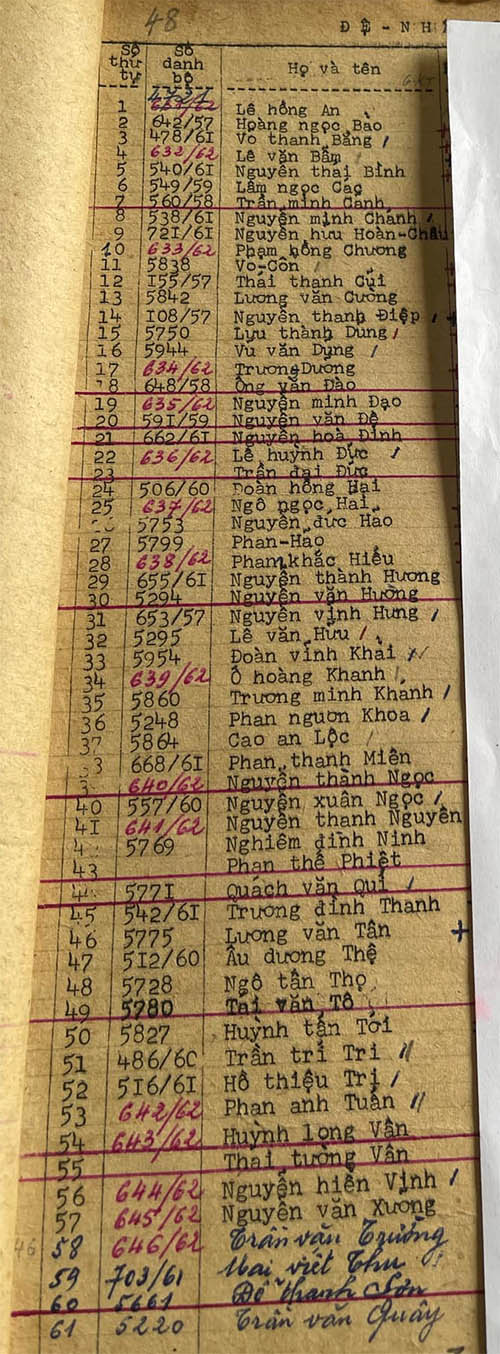 48
ĐỆ-NH
Số thứ tự Số danh bộ Họ và tên
1 Lê hồng An
2 642/57 Hoàng ngọc Bảo
3 478/6I Võ thanh Bằng /
4 632/62 Lê văn Bẩm
5 540/6I Nguyễn thái Bình
6 549/59 Lâm ngọc Các
7 560/58 Trần minh Cảnh
8 538/6I Nguyễn minh Chánh /
9 72I/6I Nguyễn hữu Hoàn-Châu
10 633/62 Phạm hồng Chương
11 5838 Võ-Côn /
12 I55/57 Thái thanh Củi
13 5842 Lương văn Cường
14 I08/57 Nguyễn thanh Điệp /
15 5750 Lưu thành Dũng /
16 5944 Vũ văn Dũng /
17 634/62 Trương Dương
8 648/58 Ông văn Đào
19 635/62 Nguyễn minh Đạo
20 59I/59 Nguyễn văn Đê
21 662/6I Nguyễn hoà Đính
22 636/62 Lê huỳnh Đức /
23 Trần đại Đức
24 506/60 Đoàn hồng Hải
25 637/62 Ngô ngọc Hải
5753 Nguyễn đức Hảo
27 5799 Phan-Hảo
28 638/62 Phạm khắc Hiếu
29 655/6I Nguyễn thành Hương
30 5294 Nguyễn văn Hưởng
31 653/57 Nguyễn vĩnh Hưng /
32 5295 Lê văn Hữu /
33 5954 Đoàn vĩnh Khải //
34 639/62 Ô hoàng Khanh /
35 5860 Trương minh Khánh /
36 5248 Phan nguơn Khoa /
37 5864 Cao an Lộc /
3 668/6I Phan thanh Miên
3 640/62 Nguyễn thành Ngọc
40 557/60 Nguyễn xuân Ngọc /
4I 641/62 Nguyễn thanh Nguyên
4 5769 Nghiêm đình Ninh
43 Phan thế Phiệt
4 577I Quách văn Quí /
45 542/6I Trương đình Thanh
46 5775 Lương văn Tân +
47 5I2/60 Âu dương Thệ
48 5728 Ngô tấn Thọ
49 5780 Tai văn Tô
50 5827 Huỳnh tấn Tới
51 486/60 Trần trí Tri //
52 5I6/6I Hồ thiệu Trị /
53 642/62 Phan anh Tuấn //
54 643/62 Huỳnh long Vân
55 Thái tường Vân
56 644/62 Nguyễn hiển Vinh /
57 645/62 Nguyễn văn Xương
46 58 646/62 Trần văn Trường
59 703/61 Mai viết Thu
60 5661 Đỗ thanh Sơn
61 5220 Trần văn Quây